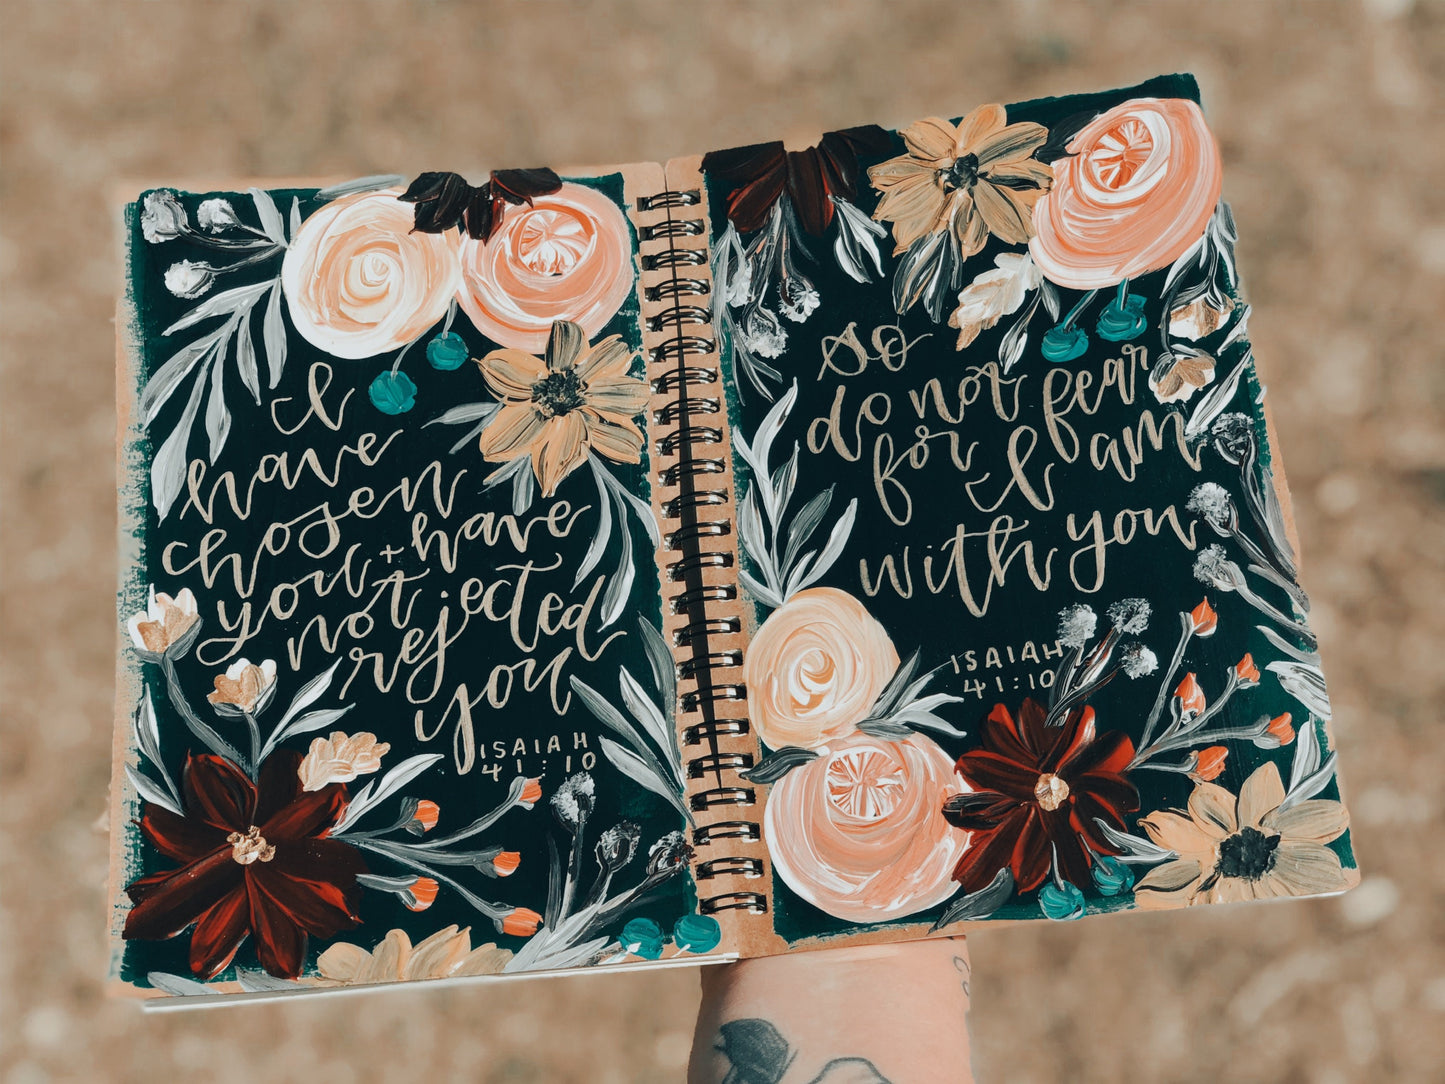 I
have
chosen
you + have
not rejected
you
ISAIAH
41:10
so
do not fear
for I am
with you
ISAIAH
41:10